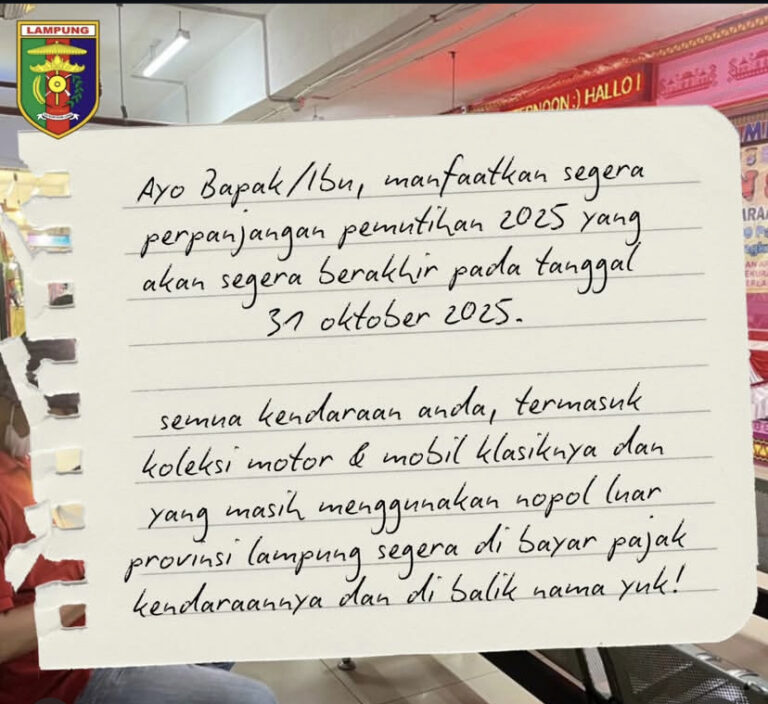 LAMPUNG
NOON :) HALLO !
Ayo Bapak/Ibu, manfaatkan segera
perpanjangan pemutihan 2025 yang
akan segera berakhir pada tanggal
31 oktober 2025.
semua kendaraan anda, termasuk
koleksi motor & mobil klasiknya dan
yang masih menggunakan nopol luar
provinsi lampung segera di bayar pajak
kendaraannya dan di balik nama yuk!